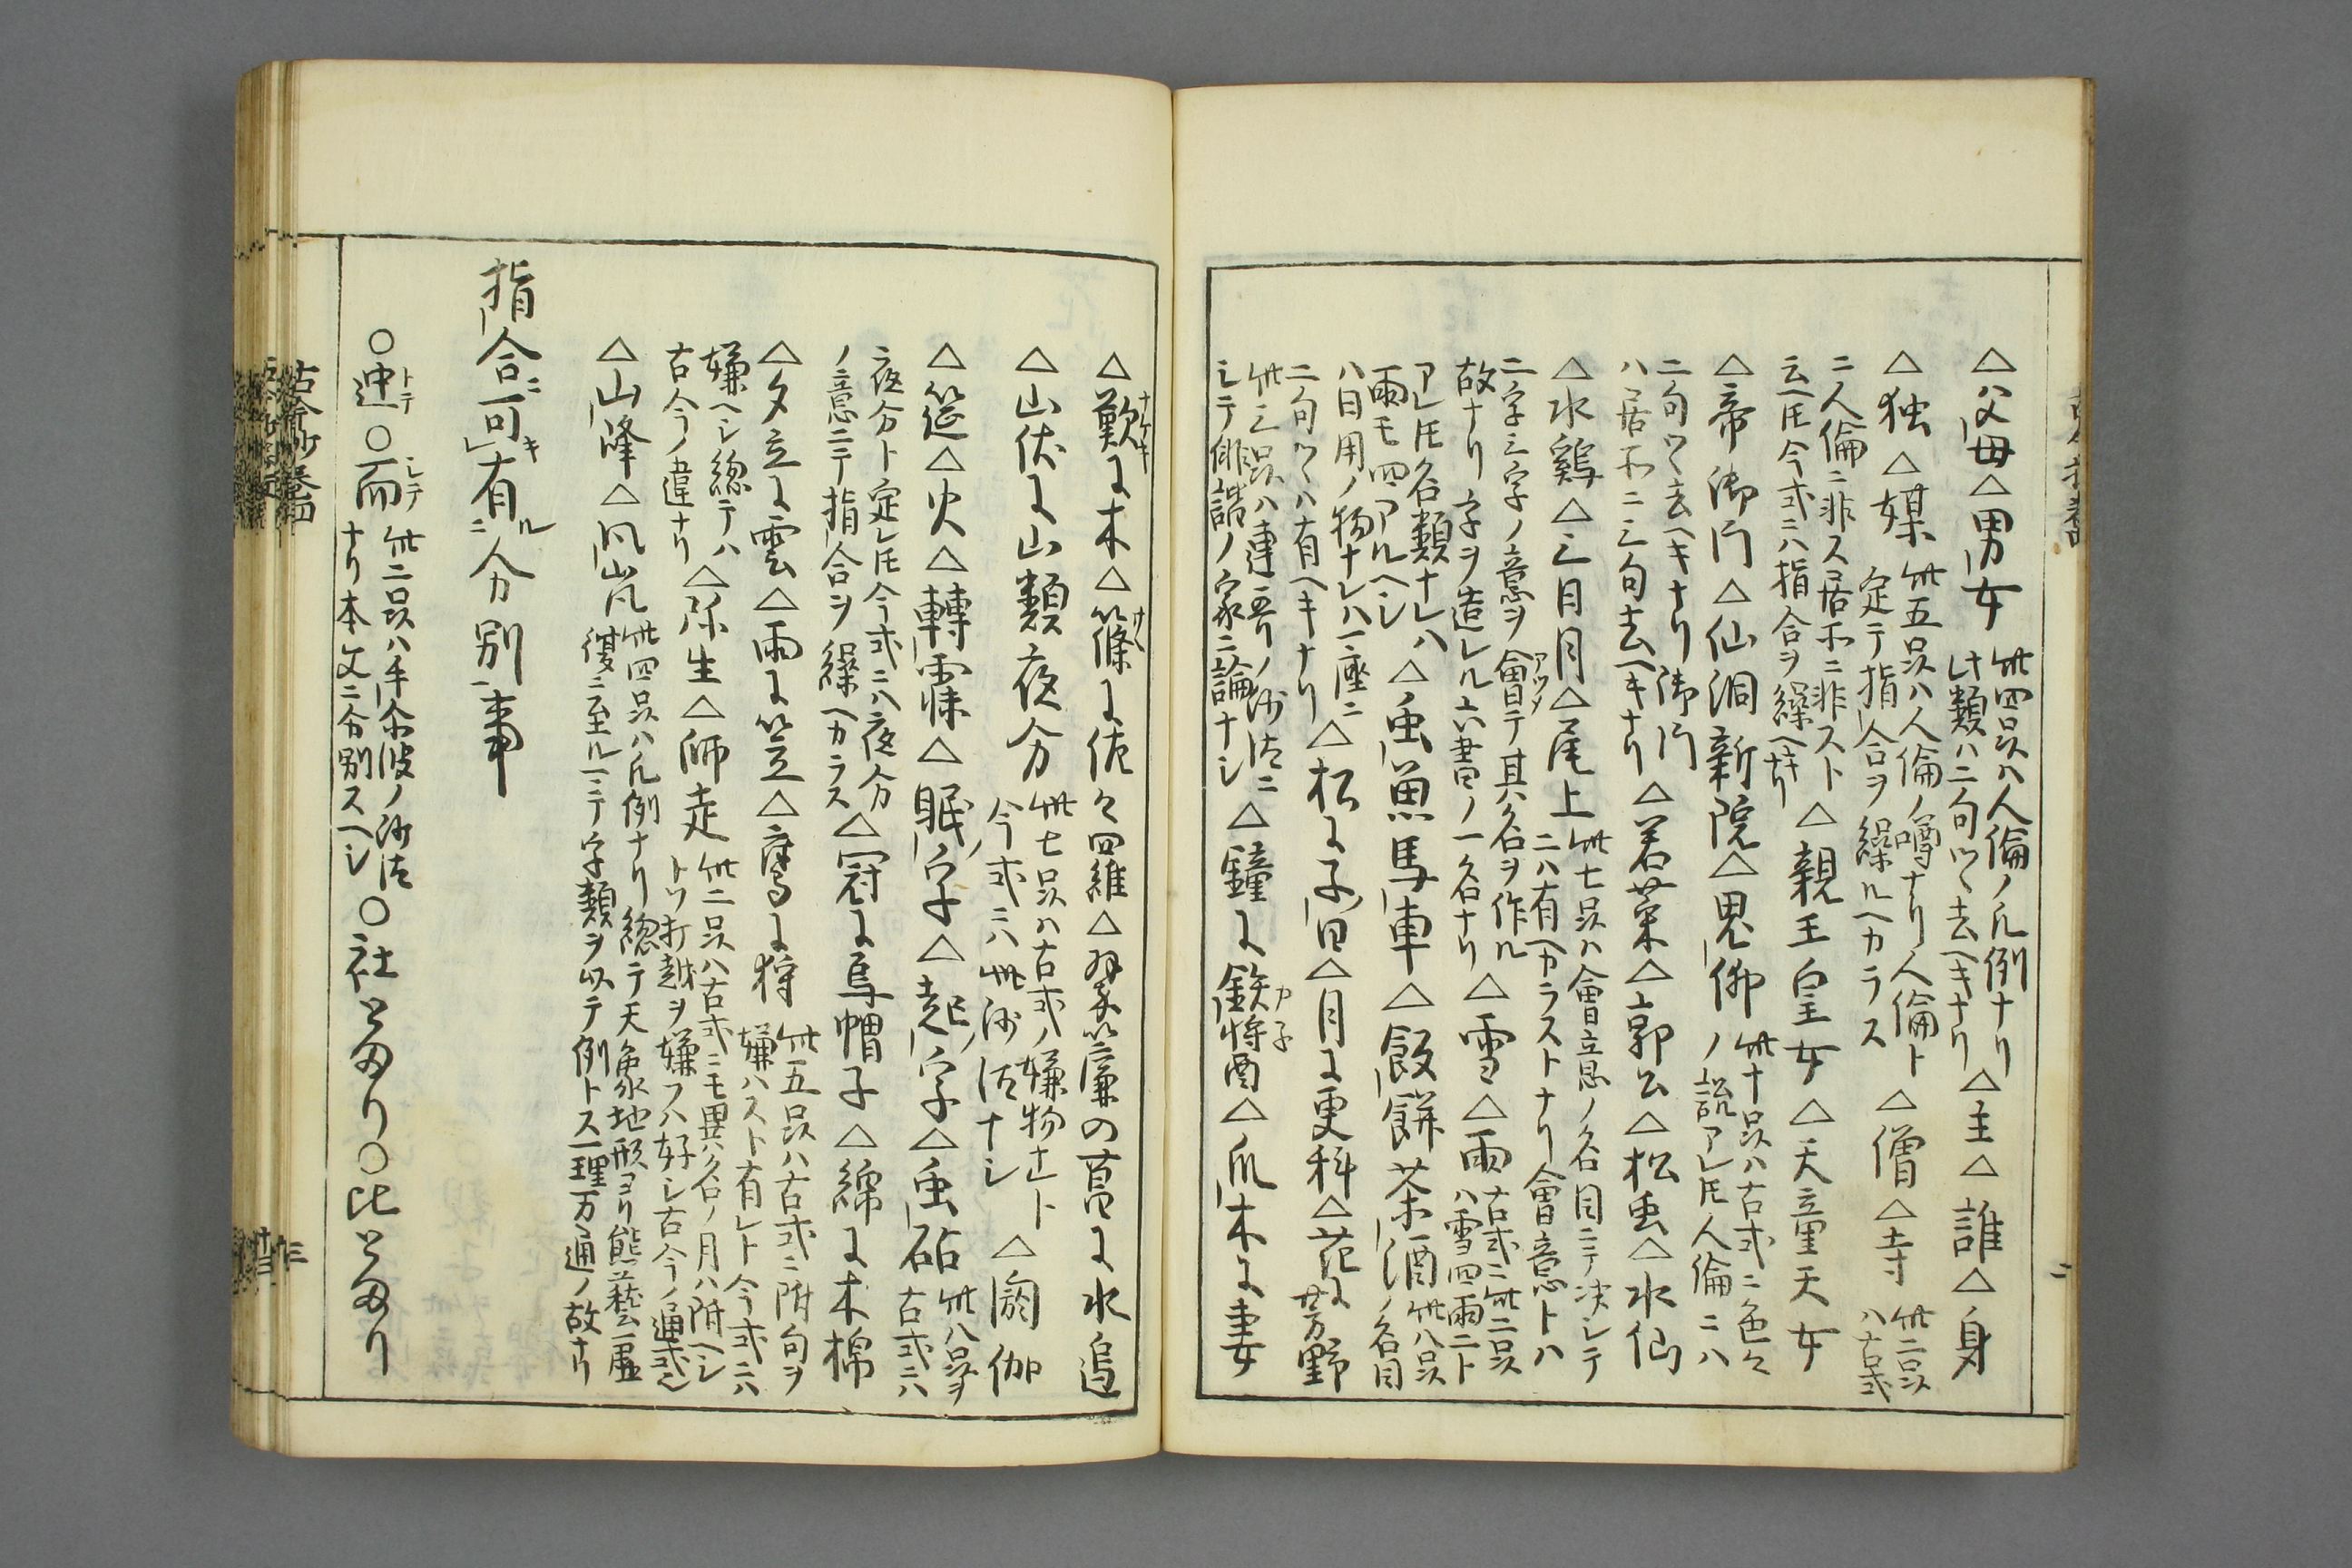 △父母△男女 此四品ハ人倫ノ凡例ナリ
此類ハ二句ツヽ去ヘキナリ △主△誰△身
△独△媒 此五品ハ人倫ノ噂ナリ人倫ト
定テ指合ヲ繰ルヘカラス △僧△寺 此二品
ハ古式
ニ人倫ニ非ス居所ニ非スト
云ヘ𪜈今式ニハ指合ヲ繰ヘキナリ △親王皇女△天童天女
△帝御門△仙洞新院△鬼仏 此十品ハ古式ニ色々
ノ説アレ𪜈人倫ニハ
二句ツヽ去ヘキナリ御門
ハ居所ニ三句去ヘキナリ △若菜△郭公△松虫△水仙
△水鶏△三日月△尾上 此七品ハ會意ノ名目ニテ決シテ
ニハ有ヘカラストナリ會意トハ
二字三字ノ意ヲ會テ其名ヲ作ル
故ナリ字ヲ造レル六書ノ一名ナリ △雪△雨 古式ニ此二品
ハ雪四雨ニト
アレ𪜈名類ナレハ
雨モ四アルヘシ △虫魚馬車△飯餅茶酒 此八品
ノ名目
ハ日用ノ物ナレハ一座ニ
二句ツヽハ有ヘキナリ △松ニ子日△月ニ更科△花ニ芳野
此三品ハ連哥ノ沙法ニ
シテ俳諧ノ家ニ論ナシ △鐘ニ鉄将酉△爪木ニ妻
△歎ニ木△篠ニ佐々四維△翠簾の菖ニ水追
△山伏ニ山類夜分 此七品ハ古式ノ嫌物ナレト
今式ニハ此沙法ナシ △閼伽
△筵△火△轉寐△眠字△起字△虫砧 此八品ヲ
古式ニハ
夜分ト定レ𪜈今式ニハ夜分
ノ意ニテ指合ヲ繰ヘカラス △冠ニ烏帽子△綿ニ木棉
△夕立ニ雲△雨ニ笠△鷹ニ狩 此五品ハ古式ニ附句ヲ
嫌ハスト有レト今式ニハ
嫌ヘシ總テハ
古今ノ違ナリ △弥生△師走 此二品ハ古式ニモ異名ノ月ハ附ヘシ
トツ打越ヲ嫌フハ好シ古今ノ通式也
△山峰△風嵐 此四品ハ凡例ナリ總テ天象地形ヨリ態藝虚
復ニ至ル一ニテ字類ヲ以テ例トス一理万通ノ故ナリ
指合可有分別事
○迚○而 此二品ハ手尓波ノ沙法
ナリ本文ニ分別スヘシ ○社とあり○比とあり
古今抄巻四
三